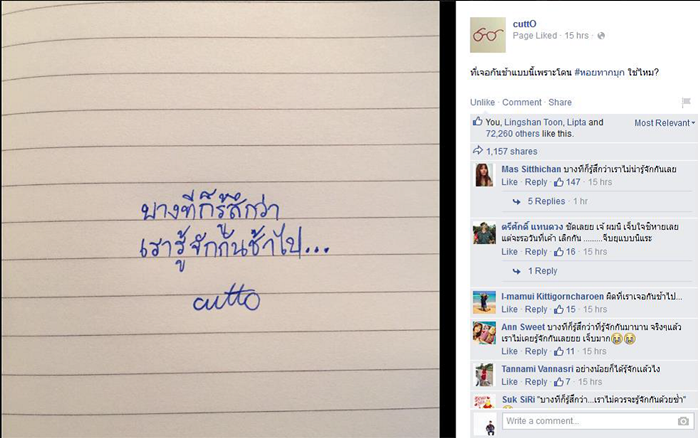 บางทีก็รู้สึกว่า
เรารู้จักกันช้าไป...
cuttO
cuttO
Page Liked · 15 hrs ·
ที่เจอกันช้าแบบนี้เพราะโดน #หอยทากบุก ใช่ไหม?
Unlike · Comment · Share
You, Lingshan Toon, Lipta and
72,260 others like this.
Most Relevant
1,157 shares
Mas Sitthichan บางทีก็รู้สึกว่าเราไม่น่ารู้จักกันเลย
Like · Reply · 147 · 15 hrs
5 Replies · 1 hr
ตรีศักดิ์ แทนดวง ชัดเลยย เจ๋ ผมนิ เจ็บใจชิหายเลย
แต่จะรอวันที่เค้า เลิกกัน ..........จีบยุแบบนิแระ
Like · Reply · 16 · 15 hrs
1 Reply
I-mamui Kittigorncharoen ผิดที่เราเจอกันช้าไป...
Like · Reply · 15 · 15 hrs
Ann Sweet บางทีก็รู้สึกว่าที่รู้จักกันมานาน จริงๆแล้ว
เราไม่เคยรู้จักกันเลยยย เจ็บมาก
Like · Reply · 11 · 15 hrs
Tannami Vannasri อย่างน้อยก็ได้รู้จักแล้วไง
Like · Reply · 7 · 15 hrs
Suk SiRi "บางทีก็รู้สึกว่า...เราไม่ควรจะรู้จักกันด้วยซ้ำ"
Write a comment...